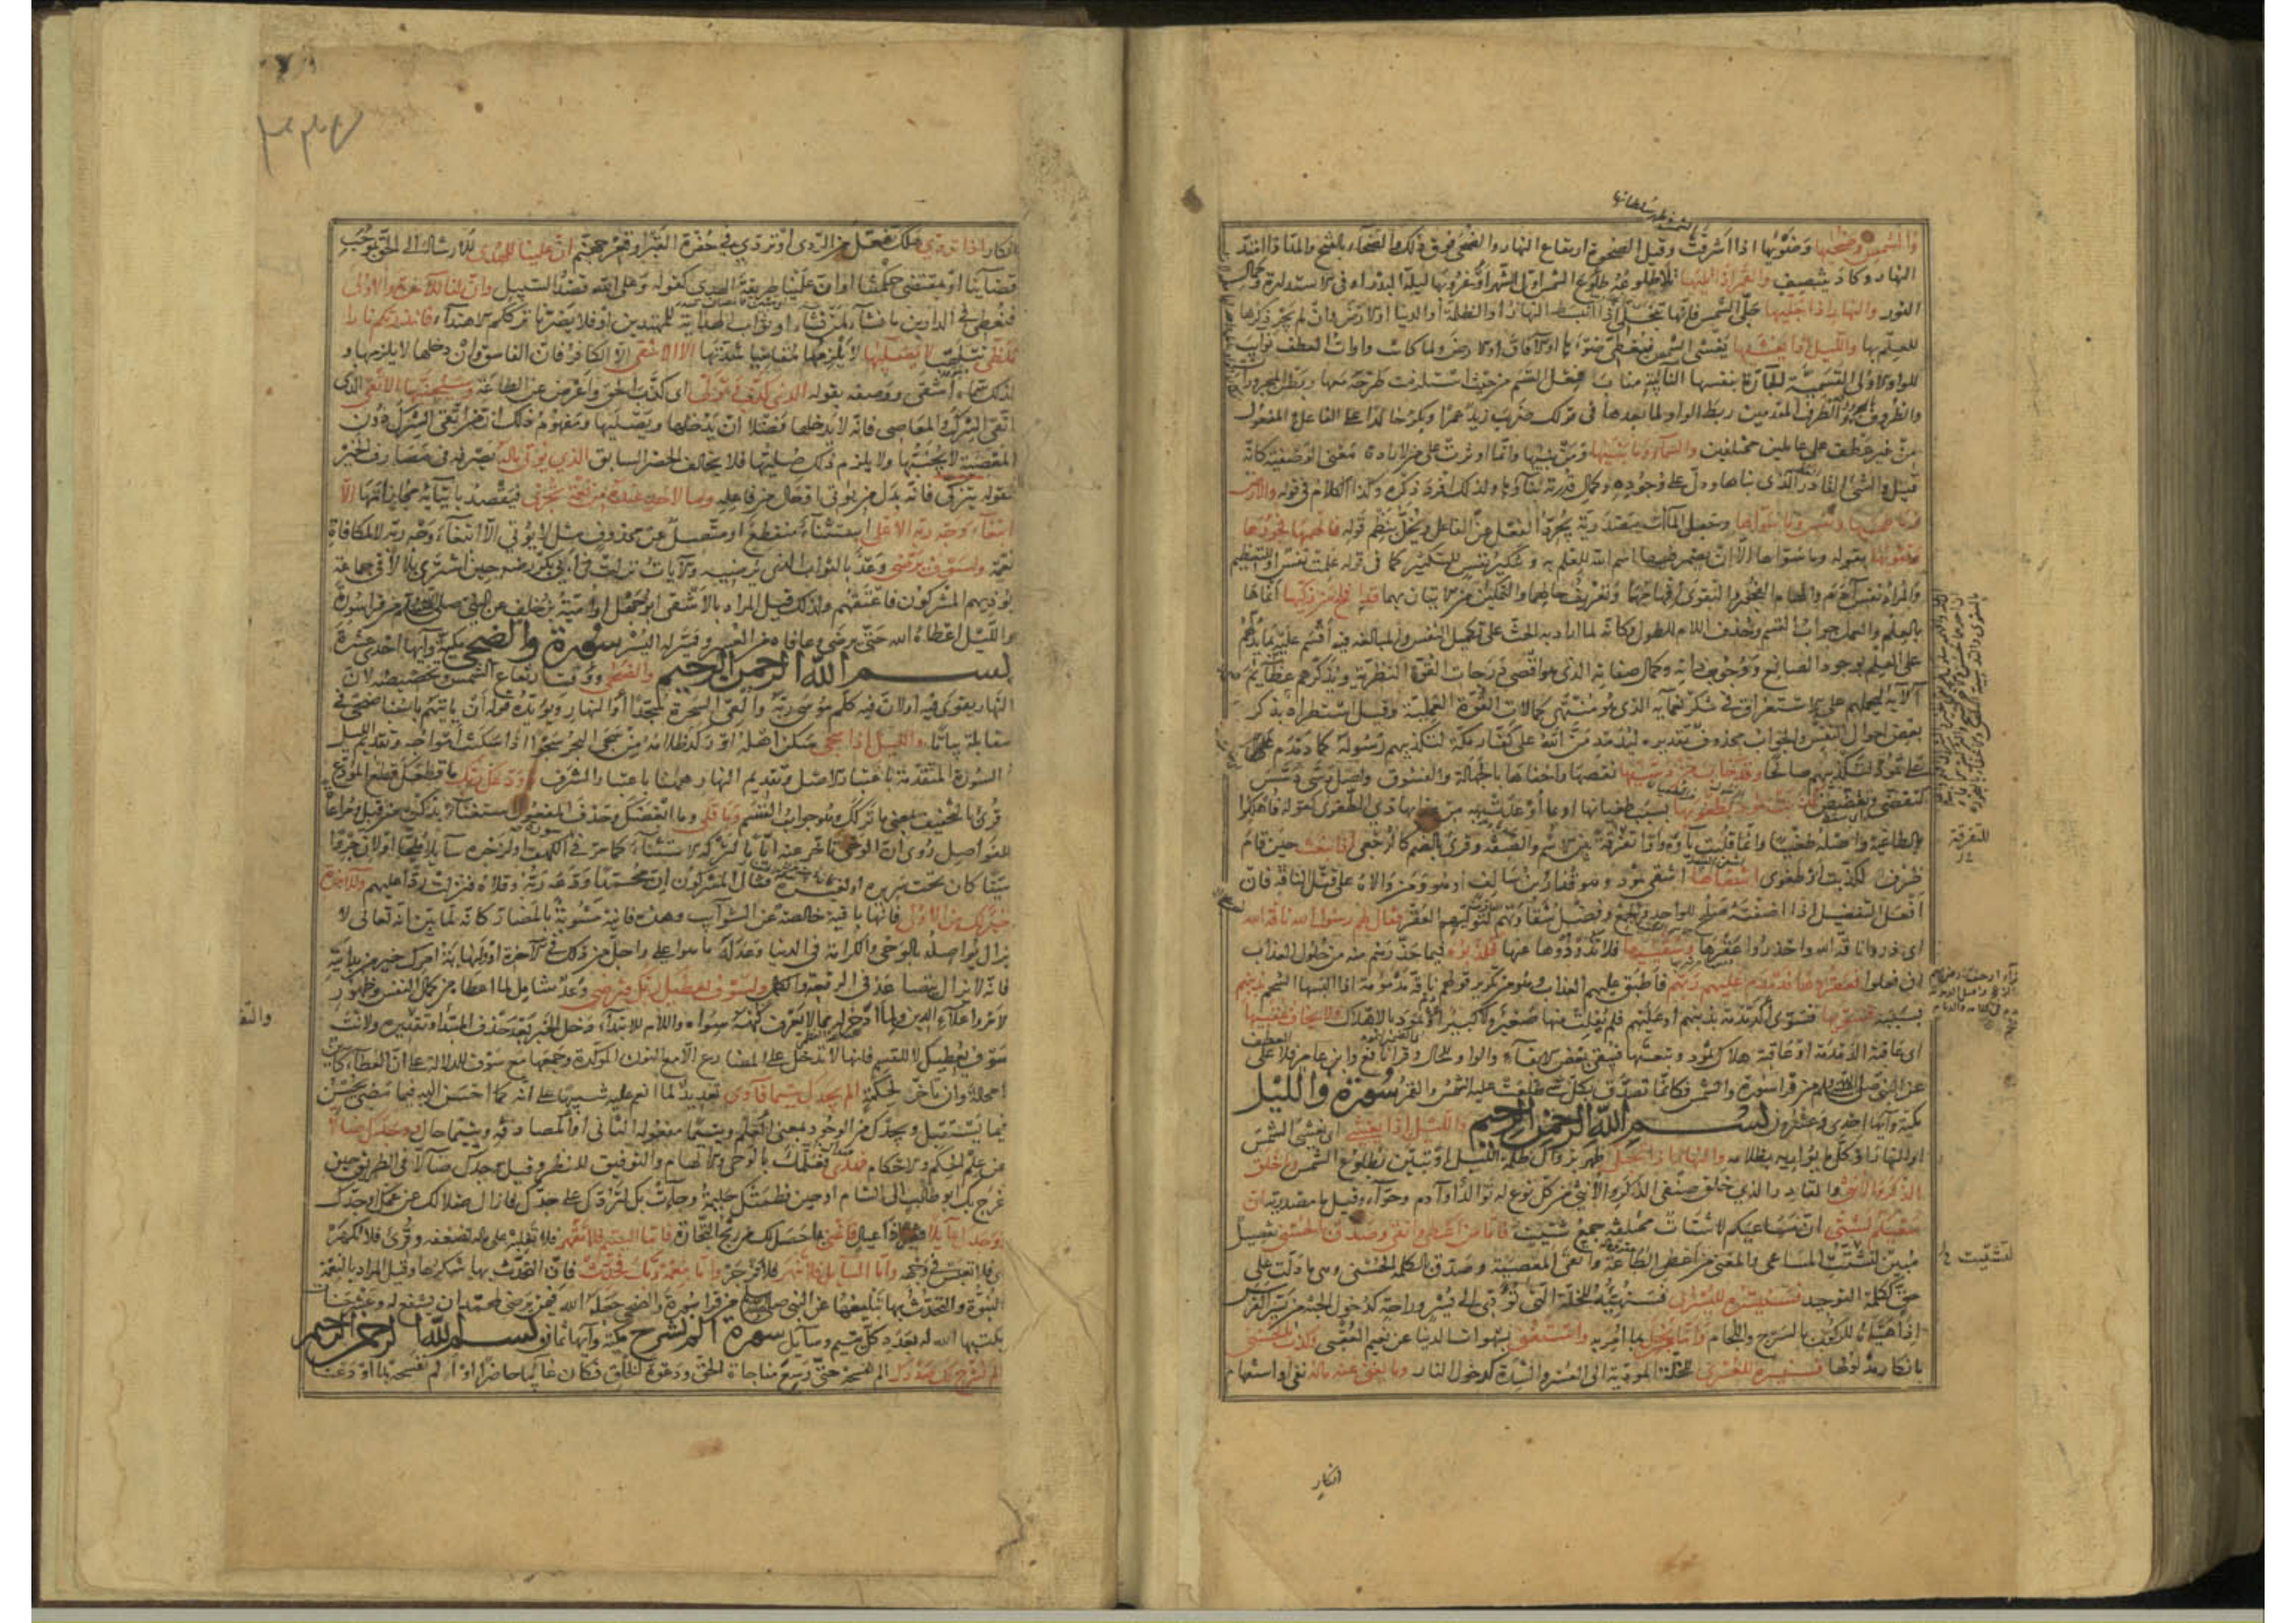 والشمس وضحيها وضوئها اذا اشرقت وقيل الضحوة ارتفاع النهار والضحى فوق ذلك والضحاء بالفتح والمد اذا امتد
النهار وكاد ينتصف والقمر اذا تليها تلا طلوعه طلوع الشمس اول الشهر او غروبها ليلة البدر او في الاستدارة وكمال
النور والنهار اذا جليها جلى الشمس فانها تتجلى اذا انبسط النهار او الظلمة او الدنيا او الارض وان لم يجر ذكرها
للعلم بها والليل اذا يغشيها يغشى الشمس فيغطى ضوءها او الآفاق او الارض ولما كانت واوات العطف نوابت
للواو الاولى القسمية الجارة بنفسها النائبة مناب فعل القسم من حيث استلزمت طرحه معها ربطن المجرورات
والظروف بالمجرور والظرف المقدمين ربط الواو لما بعدها في قولك ضرب زيد عمرا وبكر خالدا على الفاعل والمفعول
من غير عطف على عاملين مختلفين والسماء وما بنيها ومن بنيها وانما اوثرت على من لارادة معنى الوصفية كانه
قيل والشئ القادر الذي بناها ودل على وجوده وكمال قدرته بناؤها ولذلك افرد ذكره وكذا الكلام في قوله والارض
وما طحيها ونفس وما سويها وجعل الماآت مصدرية يجرد الفعل عن الفاعل ويخل بنظم قوله فالهمها فجورها
وتقويها بقوله وما سواها الا ان يضمر فيها اسم الله للعلم به وتنكير نفس للتكثير كما في قوله علمت نفس او للتعظيم
والمراد نفس آدم والهام الفجور والتقوى افهامهما وتعريف حالهما والتمكين من الاتيان بهما قد افلح من زكيها انماها
بالعلم والعمل جواب القسم وحذف اللام للطول وكانه لما اراد به الحث على تكميل النفس والمبالغة فيه اقسم عليه بما يدلهم
على العلم بوجود الصانع ووجوب ذاته وكمال صفاته الذي هو اقصى درجات القوة النظرية ويذكرهم عظائم
آلائه ليحملهم على الاستغراق في شكر نعمائه الذي هو منتهى كمالات القوة العملية وقيل استطراد بذكر
بعض احوال النفس والجواب محذوف تقديره ليدمدمن الله على كفار مكة لتكذيبهم رسوله كما دمدم
على ثمود لتكذيبهم صالحا وقد خاب من دسيها نقصها واخفاها بالجهالة والفسوق واصل دسى دسس
كتقضى وتقضض كذبت ثمود بطغويها بسبب طغيانها او بما اوعدت به من عذابها ذي الطغوى كقوله فاهلكوا
بالطاغية واصله طغياها وانما قلبت ياؤه واوا تفرقة بين الاسم والصفة وقرئ بالضم كالرجعى اذ انبعث حين قام
ظرف لكذبت او طغوى اشقيها اشقى ثمود وهو قدار بن سالف او هو ومن والاه على قتل الناقة فان
افعل التفضيل اذا اضفته صلح للواحد والجمع وفضل شقاوتهم لتوليهم العقر فقال لهم رسول الله ناقة الله
اى ذروا ناقة الله واحذروا عقرها وسقييها فلا تذودوها عنها فكذبوه فيما حذرهم منه من حلول العذاب
ان فعلوا فعقروها فدمدم عليهم ربهم فاطبق عليهم العذاب وهو من تكرير قولهم ناقة مدمومة اذا البسها الشحم بذنبهم
بسببه فسويها فسوى الدمدمة بينهم او عليهم فلم يفلت منها صغير ولا كبير او ثمود بالاهلاك ولا يخاف عقبيها
اى عاقبة الدمدمة او عاقبة هلاك ثمود وتبعتها فيبقى بعض الابقاء والواو للحال وقرأ نافع وابن عامر فلا على العطف
عن النبي صلى الله عليه وسلم من قرأ سورة والشمس فكانما تصدق بكل شئ طلعت عليه الشمس والقمر سورة والليل
مكية وآيها احدى وعشرون بسم الله الرحمن الرحيم والليل اذا يغشى اى يغشى الشمس
او النهار او كل ما يواريه بظلامه والنهار اذا تجلى ظهر بزوال ظلمة الليل او تبين بطلوع الشمس وما خلق
الذكر والانثى والقادر الذي خلق صنفى الذكر والانثى من كل نوع له توالد او آدم وحواء وقيل ما مصدرية ان
سعيكم لشتى ان مساعيكم لاشتات مختلفة جمع شتيت فاما من اعطى واتقى وصدق بالحسنى تفصيل
مبين لتشتت المساعى والمعنى من اعطى الطاعة واتقى المعصية وصدق بالكلمة الحسنى وهى ما دلت على
حق ككلمة التوحيد فسنيسره لليسرى فسنهيئه للخلة التي تؤدى الى يسر وراحة كدخول الجنة من يسر الفرس
اذا هيأه للركوب بالسرج واللجام واما من بخل بما امر به واستغنى بشهوات الدنيا عن نعيم العقبى وكذب بالحسنى
بانكار مدلولها فسنيسره للعسرى للخلة المؤدية الى العسر والشدة كدخول النار وما يغنى عنه ماله نفى او استفهام
للتفرقة
لتشتت
انكار
انكار اذا تردى هلك تفعل من الردى او تردى في حفرة القبر او قعر جهنم ان علينا للهدى للارشاد الى الحق بموجب
قضائنا او بمقتضى حكمتنا او ان علينا طريقة الهدى كقوله وعلى الله قصد السبيل وان لنا للآخرة والاولى
فنعطى في الدارين ما نشاء لمن نشاء او ثواب الهداية للمهتدين او فلا يضرنا ترككم الاهتداء فانذرتكم نارا
تلظى تتلهب لا يصليها لا يلزمها مقاسيا شدتها الا الاشقى الا الكافر فان الفاسق وان دخلها لا يلزمها و
لذلك سماه اشقى ووصفه بقوله الذي كذب وتولى اى كذب الحق واعرض عن الطاعة وسيجنبها الاتقى الذى
اتقى الشرك والمعاصى فانه لا يدخلها فضلا ان يدخلها ويصليها ومفهوم ذلك ان من اتقى الشرك دون
المعصية لا يجنبها ولا يلزم ذلك صليها فلا يخالف الحصر السابق الذي يؤتى ماله يصرفه في مصارف الخير
لقوله يتزكى فانه بدل من يؤتى او حال من فاعله وما لاحد عنده من نعمة تجزى فيقصد بايتائه مجازاتها الا
ابتغاء وجه ربه الاعلى استثناء منقطع او متصل عن محذوف مثل لا يؤتى الا ابتغاء وجه ربه لا لمكافاة
نعمة ولسوف يرضى وعد بالثواب الذي يرضيه والآيات نزلت في ابي بكر رضى حين اشترى بلالا في جماعة
يؤذيهم المشركون فاعتقهم ولذلك قيل المراد بالاشقى ابو جهل او امية بن خلف عن النبي صلى الله عليه وسلم من قرأ سورة
والليل اعطاه الله حتى يرضى وعافاه من العسر ويسر له اليسر سورة والضحى مكية وآيها احدى عشرة
بسم الله الرحمن الرحيم والضحى ووقت ارتفاع الشمس وتخصيصه لان
النهار يقوى فيه او لان فيه كلم موسى ربه والقى السحرة سجدا او النهار ويؤيده قوله ان يأتيهم باسنا ضحى في
مقابلة بياتا والليل اذا سجى سكن اهله او ركد ظلامه من سجى البحر سجوا اذا سكنت امواجه وتقديم الليل
السورة المتقدمة باعتبار الاصل وتقديم النهار ههنا باعتبار الشرف ما ودعك ربك ما قطعك قطع المودع
قرئ بالتخفيف بمعنى ما تركك وهو جواب القسم وما قلى وما ابغضك وحذف المفعول استغناء بذكره من قبل ومراعاة
للفواصل روى ان الوحى تأخر عنه اياما لتركه الاستثناء كما مر في سورة الكهف او لزجره سائلا ملحا او لان جروا
ميتا كان تحت سريره او لغيره فقال المشركون ان محمدا ودعه ربه وقلاه فنزلت ردا عليهم وللآخرة
خير لك من الاولى فانها باقية خالصة عن الشوائب وهذه فانية مشوبة بالمضار كانه لما بين انه تعالى لا
يزال يواصله بالوحى والكرامة في الدنيا وعد له ما هو اعلى واجل من ذلك في الآخرة او لنهاية امرك خير من بدايته
فانه لا يزال يتصاعد في الرفعة والكمال ولسوف يعطيك ربك فترضى وعد شامل لما اعطاه من كمال النفس وظهور
الامر واعلاء الدين ولما ادخر له مما لا يعرف كنهه سواه واللام للابتداء دخل الخبر بعد حذف المبتدأ وتقديره ولانت
سوف يعطيك لا للقسم فانها لا تدخل على المضارع الا مع النون المؤكدة وجمعها مع سوف للدلالة على ان العطاء كائن
لا محالة وان تأخر لحكمة الم يجدك يتيما فآوى تعديد لما انعم عليه تنبيها على انه كما احسن اليه فيما مضى يحسن
فيما يستقبل ويجدك من الوجود بمعنى العلم ويتيما مفعوله الثاني او المصادفة ويتيما حال ووجدك ضالا
عن علم الحكم والاحكام فهدى فعلمك بالوحى والالهام والتوفيق للنظر وقيل وجدك ضالا في الطريق حين
خرج بك ابو طالب الى الشام او حين فطمتك حليمة وجاءت بك لتردك على جدك فازال ضلالك عن عمك او جدك
ووجدك عائلا فقيرا ذا عيال فاغنى بما حصل لك من ربح التجارة فاما اليتيم فلا تقهر فلا تغلبه على ماله لضعفه وقرئ فلا تكهر
اى فلا تعبس في وجهه واما السائل فلا تنهر فلا تزجر واما بنعمة ربك فحدث فان التحدث بها شكرها وقيل المراد بالنعمة
النبوة والتحدث بها تبليغها عن النبي صلى الله عليه وسلم من قرأ سورة والضحى جعله الله فيمن يرضى لمحمد ان يشفع له وعشر حسنات
يكتبها الله له بعدد كل يتيم وسائل سورة الم نشرح مكية وآيها ثمانى بسم الله الرحمن الرحيم
الم نشرح لك صدرك الم نفسحه حتى وسع مناجاة الحق ودعوة الخلق فكان غائبا حاضرا او الم نفسحه بما اودعنا